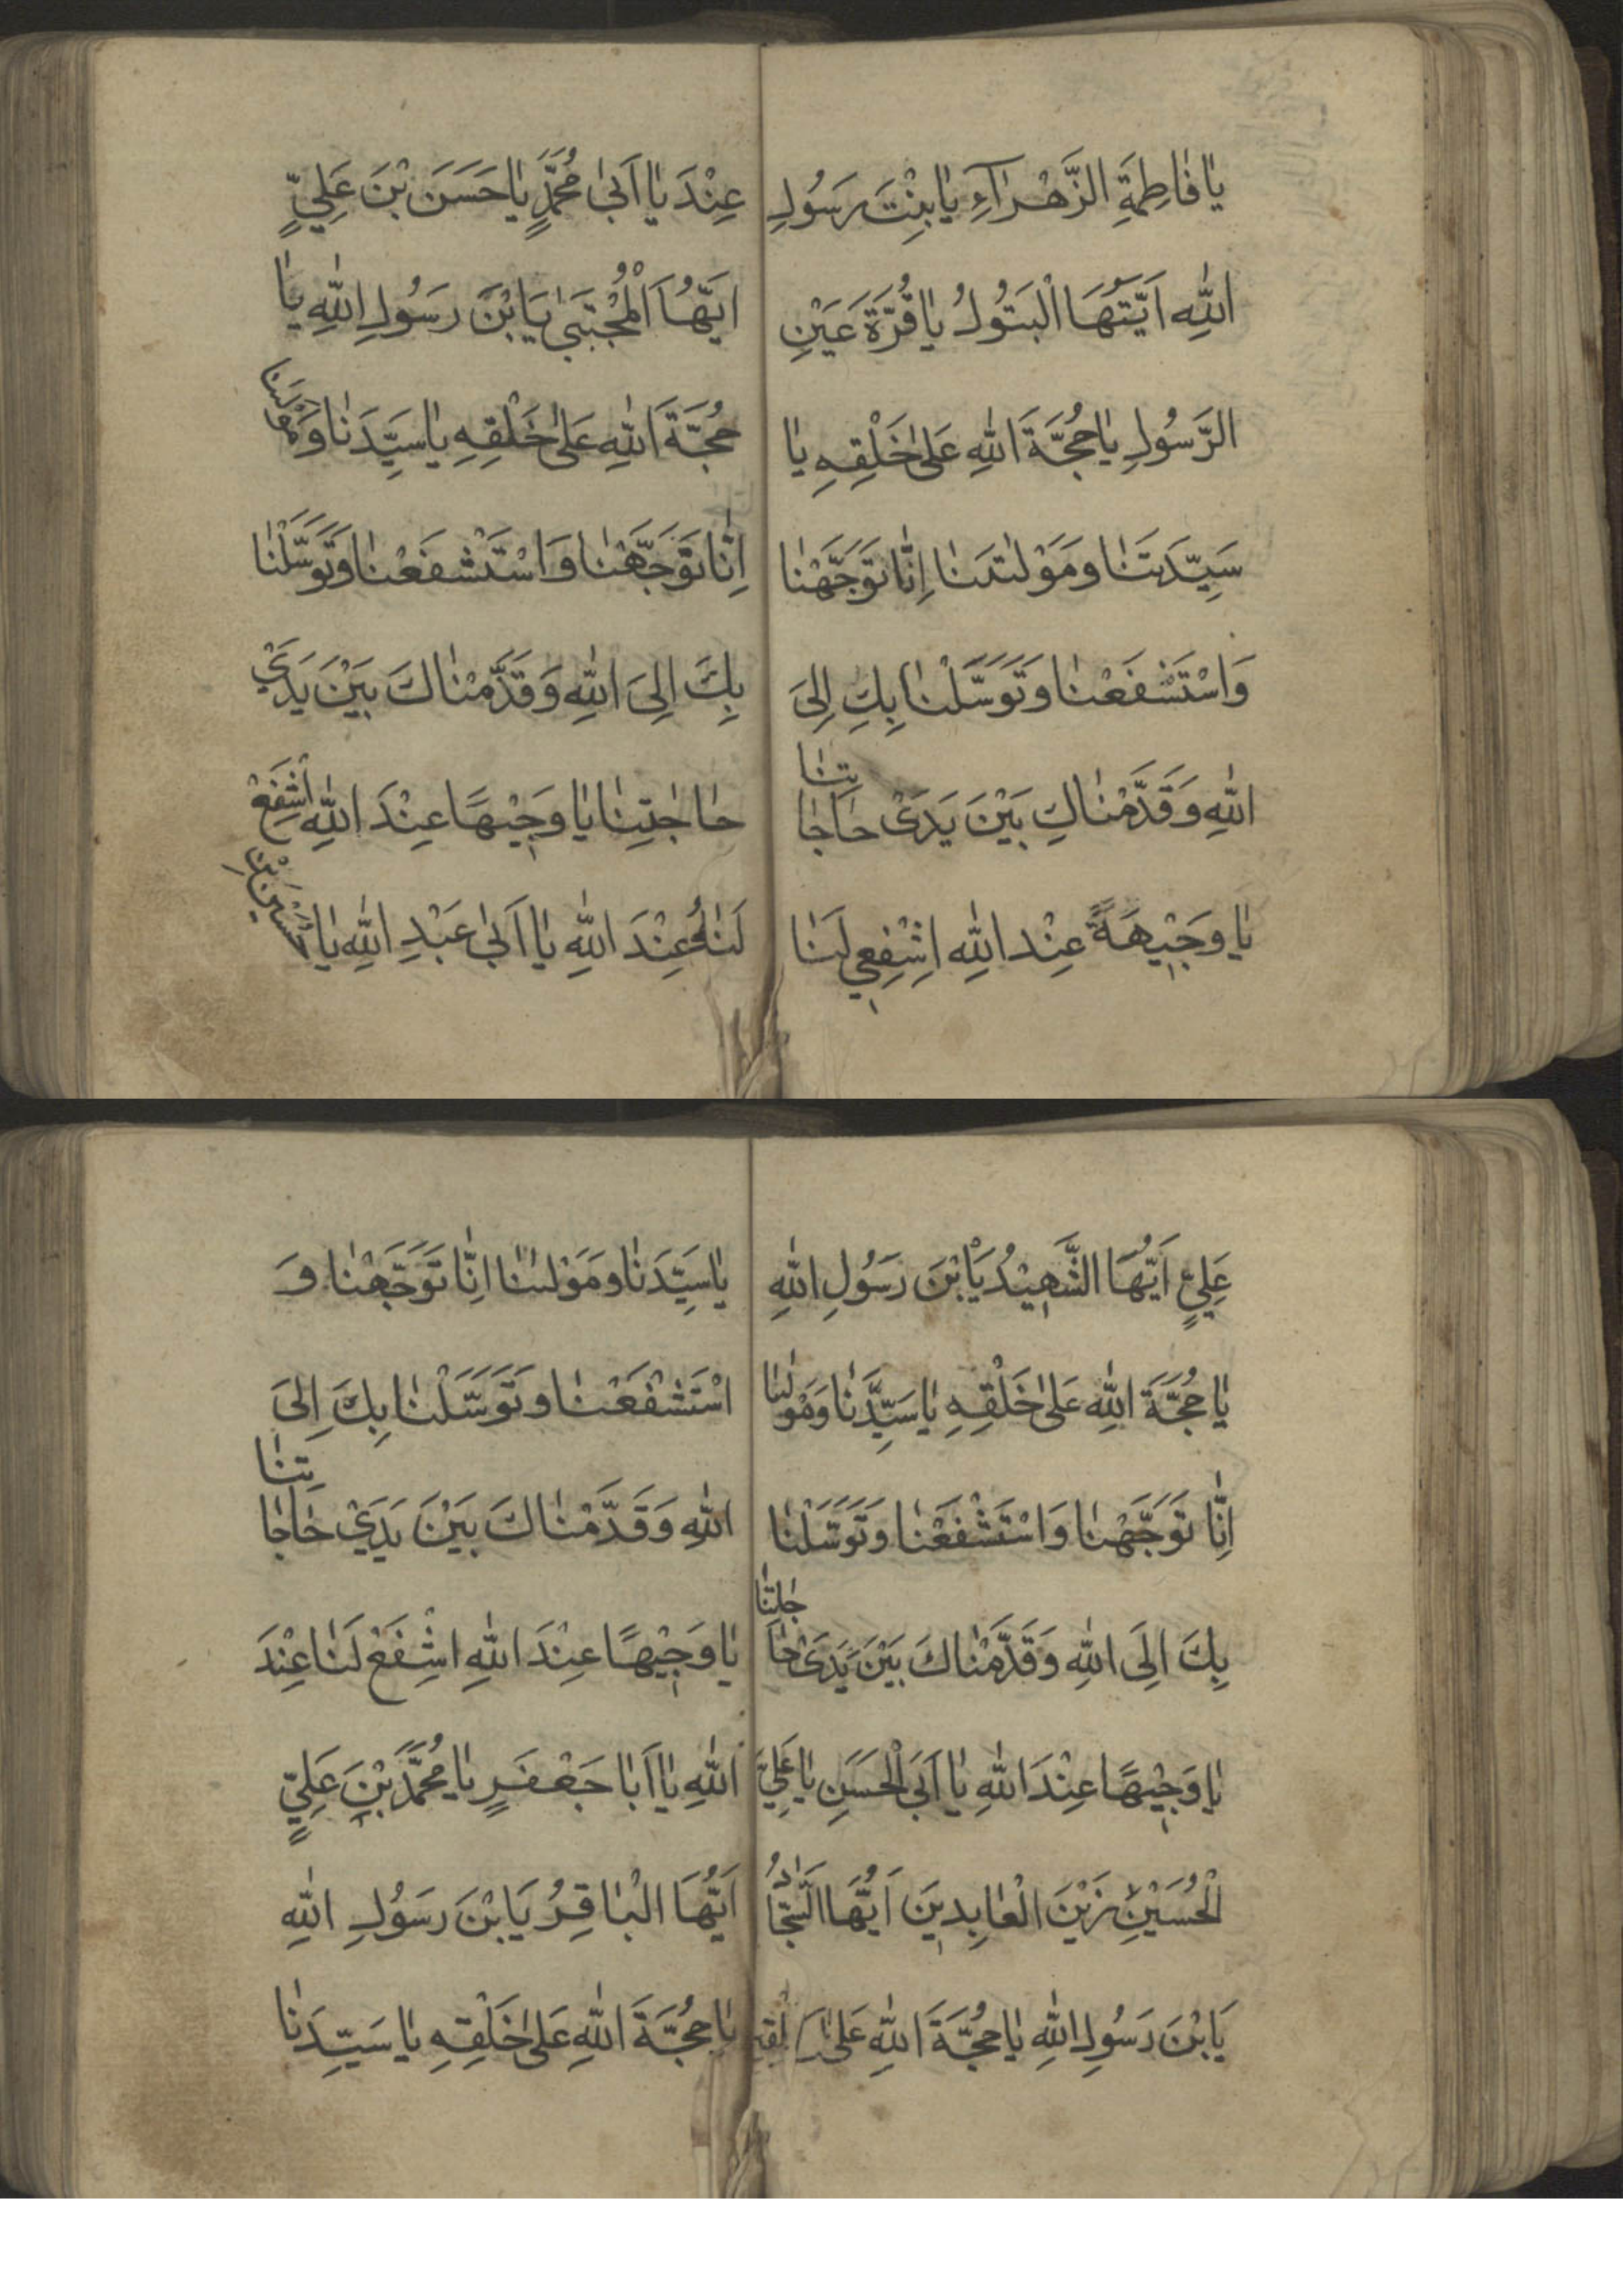 يا فاطِمَةِ الزَّهْرَآءِ يا بِنْتَ رَسُولِ
اللهِ اَيَّتُهَا الْبَتُولُ يا قُرَّةَ عَيْنِ
الرَّسُولِ يا حُجَّةَ اللهِ عَلىٰ خَلْقِهِ يا
سَيِّدَتَنا وَمَوْلٰتَنا اِنّا تَوَجَّهْنا
وَاسْتَشْفَعْنا وَتَوَسَّلْنا بِكِ اِلىَ
اللهِ وَقَدَّمْناكِ بَيْنَ يَدَىْ حاجاتِنا
يا وَجِيْهَةً عِنْدَ اللهِ اِشْفِعِي لَنا
عِنْدَ يا اَبىٰ مُحَمَّدٍ يا حَسَنَ بْنَ عَلِيٍّ
اَيُّهَا الْمُجْتَبىٰ يَابْنَ رَسُولِ اللهِ يا
حُجَّةَ اللهِ عَلىٰ خَلْقِهِ يا سَيِّدَنا وَمَوْلٰينا
اِنّا تَوَجَّهْنا وَاسْتَشْفَعْنا وَتَوَسَّلْنا
بِكَ اِلىَ اللهِ وَقَدَّمْناكَ بَيْنَ يَدَيْ
حاجٰتِنا يا وَجِيْهًا عِنْدَ اللهِ اشْفَعْ
لَنا عِنْدَ اللهِ يا اَبىٰ عَبْدِ اللهِ يا حُسَيْنَ بْنَ
عَلِيٍّ اَيُّهَا الشَّهِيْدُ يَابْنَ رَسُولِ اللهِ
يا حُجَّةَ اللهِ عَلىٰ خَلْقِهِ يا سَيِّدَنا وَمَوْلٰينا
اِنّا تَوَجَّهْنا وَاسْتَشْفَعْنا وَتَوَسَّلْنا
بِكَ اِلَى اللهِ وَقَدَّمْناكَ بَيْنَ يَدَىْ حاجٰتِنا
يا وَجِيْهًا عِنْدَ اللهِ يا اَبَى الْحَسَنِ يا عَلِيَّ
الْحُسَيْنِ زَيْنَ الْعابِدِينَ اَيُّهَا السَّجّادُ
يَابْنَ رَسُولِ اللهِ يا حُجَّةَ اللهِ عَلىٰ خَلْقِهِ
يا سَيِّدَنا وَمَوْلٰنا اِنّا تَوَجَّهْنا وَ
اسْتَشْفَعْنا وَتَوَسَّلْنا بِكَ اِلىَ
اللهِ وَقَدَّمْناكَ بَيْنَ يَدَيْ حاجاتِنا
يا وَجِيْهًا عِنْدَ اللهِ اشْفَعْ لَنا عِنْدَ
اللهِ يا اَبا جَعْفَرٍ يا مُحَمَّدَ بْنِ عَلِيٍّ
اَيُّهَا الْباقِرُ يَابْنَ رَسُولِ اللهِ
يا حُجَّةَ اللهِ عَلىٰ خَلْقِهِ يا سَيِّدَنا